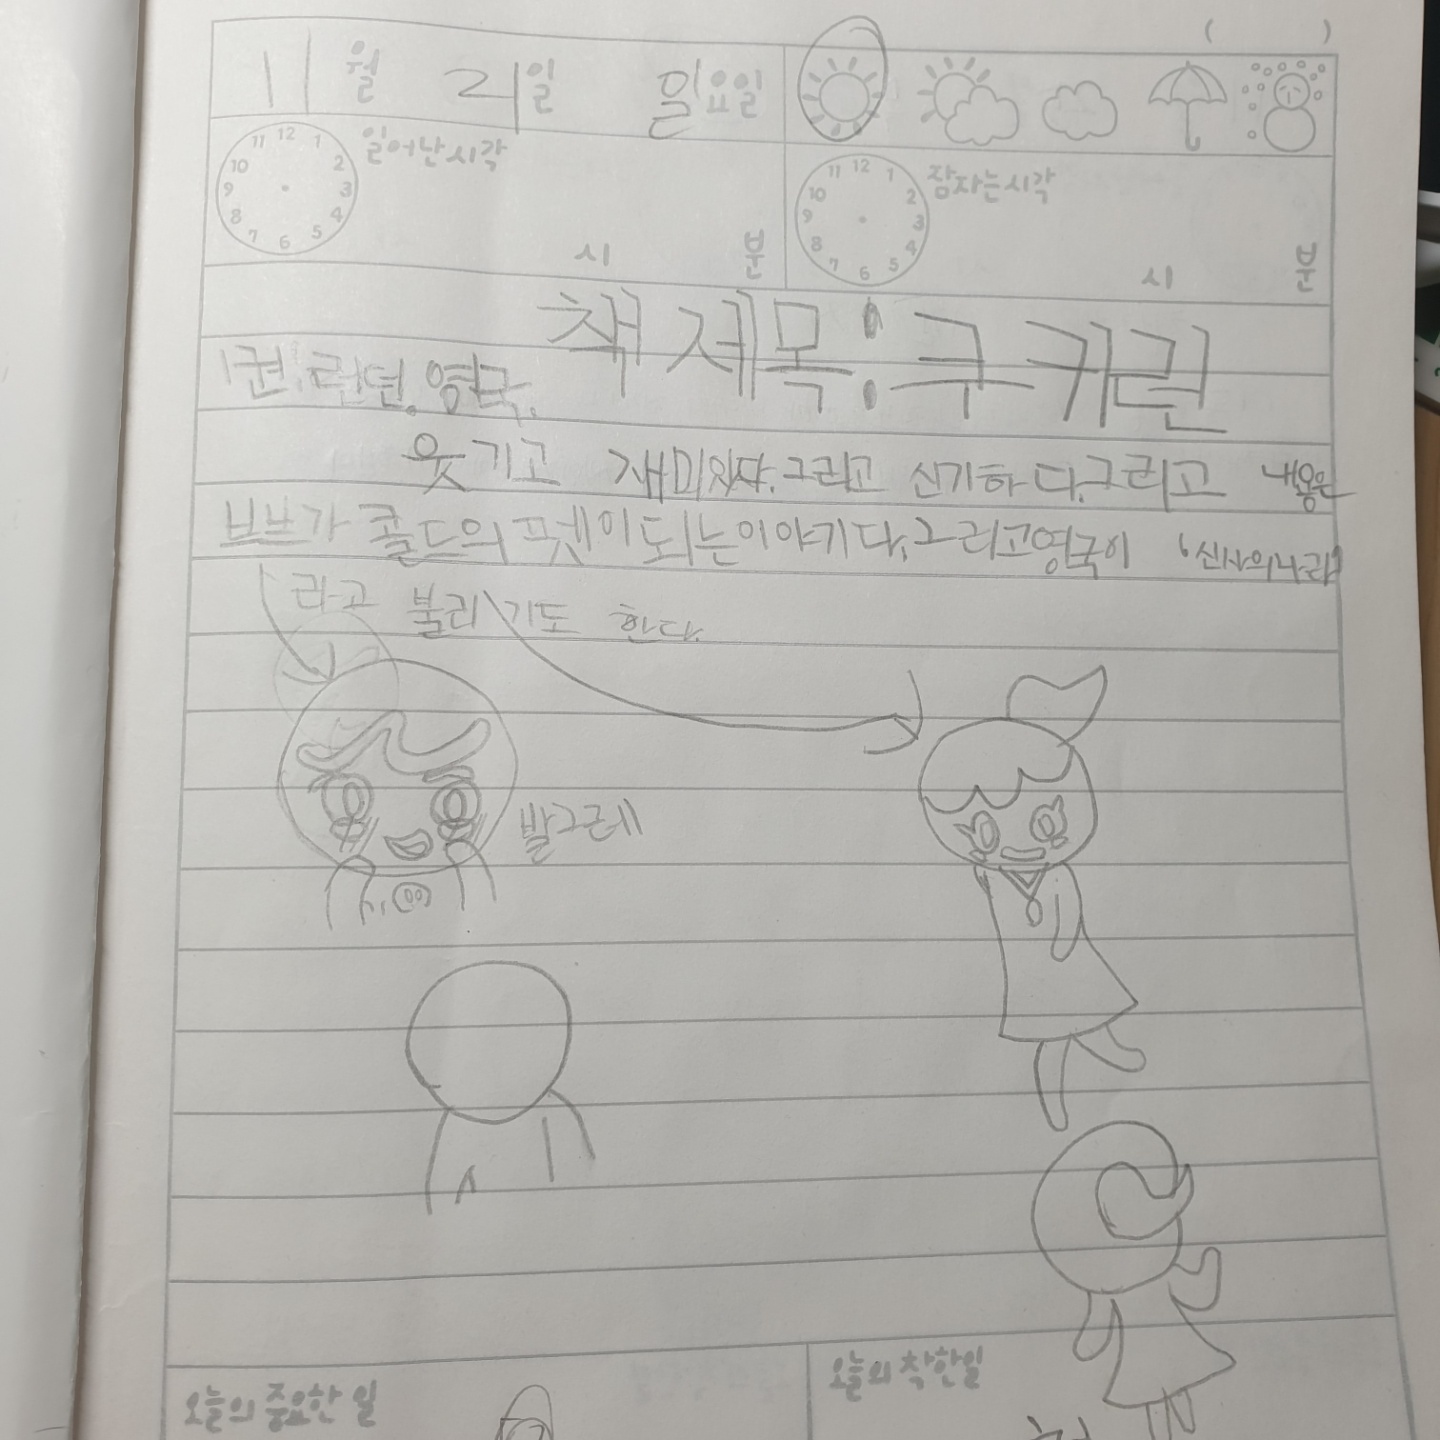 ( )
11월 21일 일요일
일어난시각
12 1 2 3 4 5 6 7 8 9 10 11
시 분
잠자는시각
12 1 2 3 4 5 6 7 8 9 10 11
시 분
책 제목:쿠키런
1권.런던.영국.
웃기고 재미있다.그리고 신기하다.그리고 내용은
브브가 콜드의 펫이되는이야기다.그리고영국이 '신사의나라'
라고 불리기도 한다.
발그레
오늘의 중요한 일
오늘의 착한일